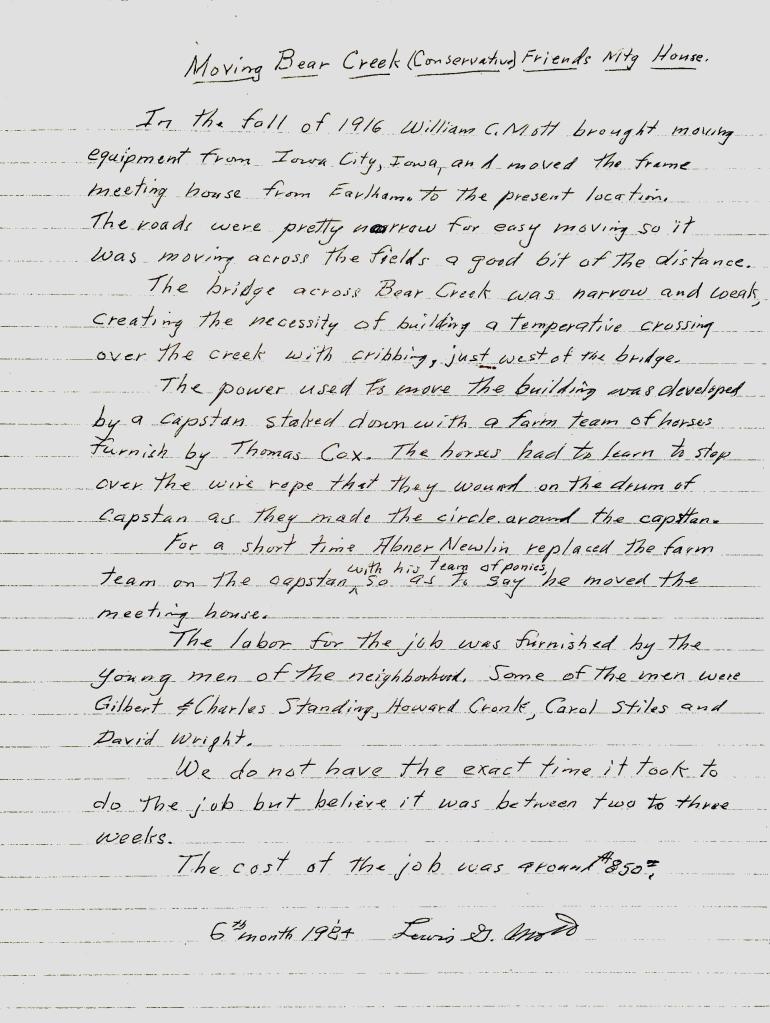 Moving Bear Creek (Conservative) Friends Mtg House.
In the fall of 1916 William C. Mott brought moving
equipment from Iowa City, Iowa, and moved the frame
meeting house from Earlham, to the present location.
The roads were pretty narrow for easy moving so it
was moving across the fields a good bit of the distance.
The bridge across Bear Creek was narrow and weak,
creating the necessity of building a temperative crossing
over the creek with cribbing, just west of the bridge.
The power used to move the building was developed
by a capstan staked down with a farm team of horses
furnish by Thomas Cox. The horses had to learn to step
over the wire rope that they wound on the drum of
capstan as they made the circle around the capstan.
For a short time Abner Newlin replaced the farm
with his team of ponies,
team on the capstan ^ so as to say he moved the
meeting house.
The labor for the job was furnished by the
young men of the neighborhood. Some of the men were
Gilbert & Charles Standing, Howard Cronk, Carol Stiles and
David Wright.
We do not have the exact time it took to
do the job but believe it was between two to three
weeks.
The cost of the job was around $850=.
6th month 1984 Lewis G. Mott